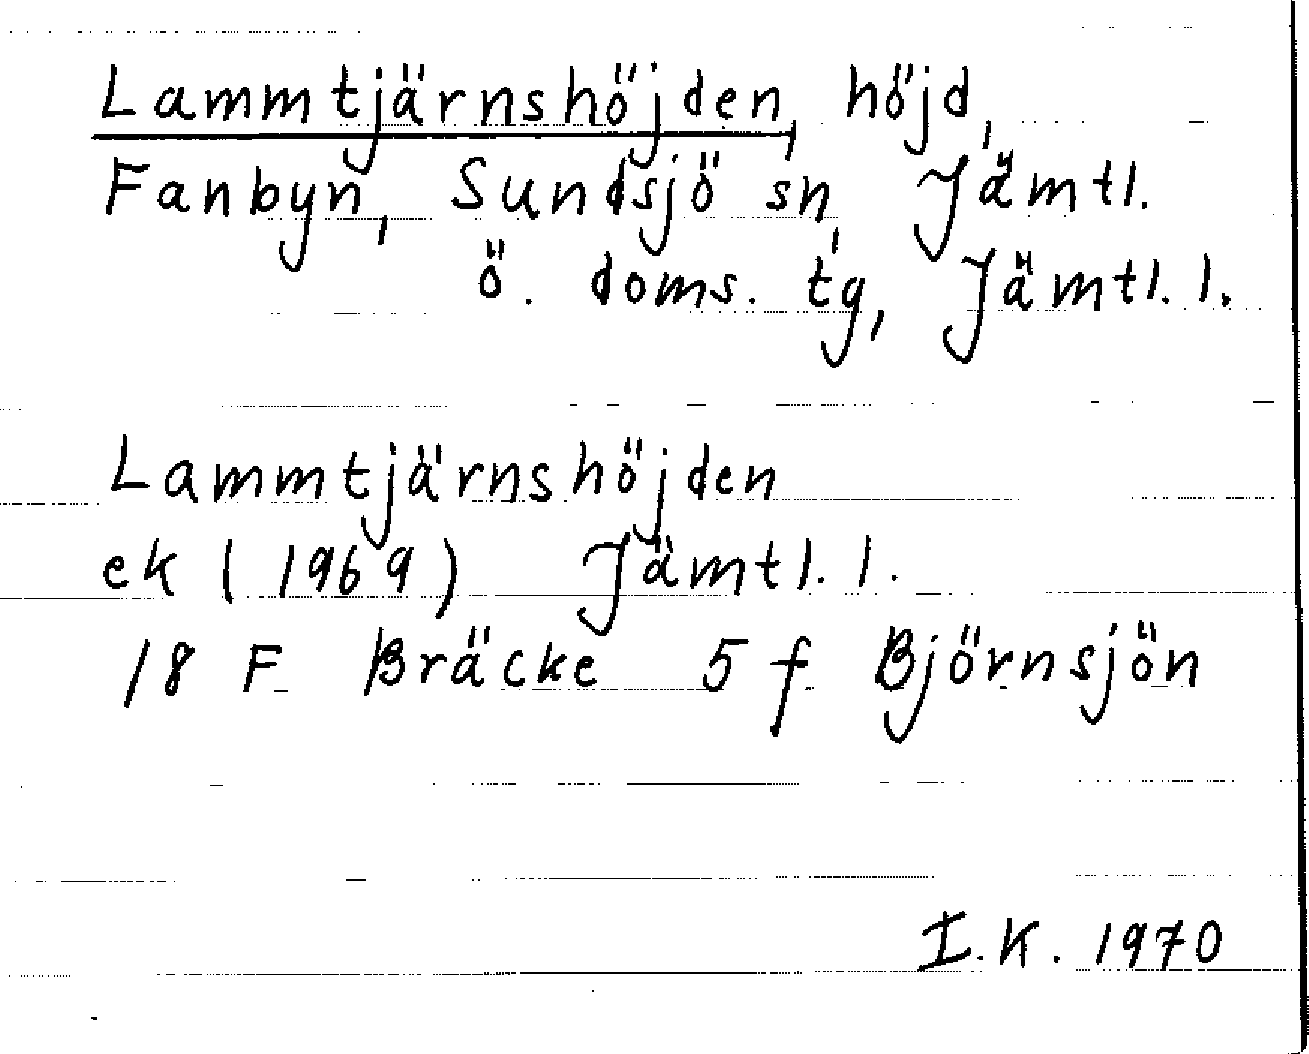 Lammtjärnshöjden, höjd,
Fanbyn, Sundsjö sn, Jämtl.
ö. doms. tg, Jämtl. l.
Lammtjärnshöjden
ek (1969) Jämtl. l.
18 F Bräcke 5 f Björnsjön
I.K. 1970